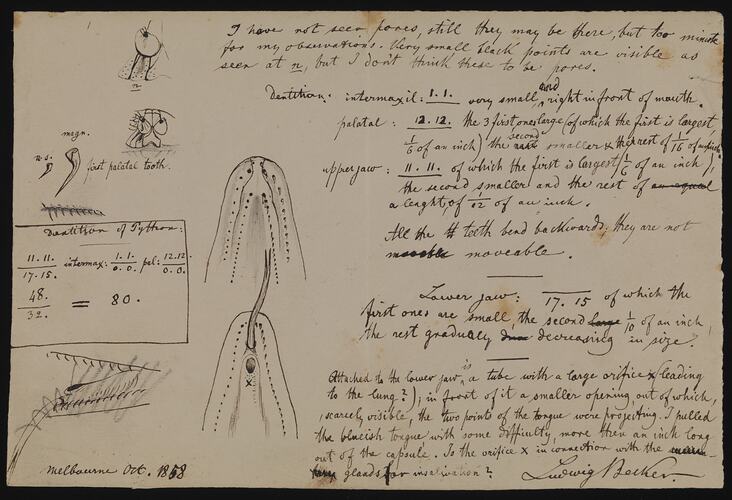 I have not seen pores, still they may be there, but too minute
for my observations. Very small black points are visible as
seen at n, but I don't think these to be pores.
n
Dentition. intermaxil: 1.1. very small, and right in front of mouth.
palatal: 12.12. the 3 first ones large (of which the first is largest,
1/6 of an inch) the second smaller & the rest of 1/16 of an inch
upper jaw: 11.11. of which the first is largest (1/6 of an inch),
the second smaller and the rest of an equal
a lenght, of 1/12 of an inch.
All the teeth bend backwards; they are not
moveable.
Lower jaw: 17.15 of which the
first ones are small, the second large 1/10 of an inch,
the rest gradually decreasing in size.
Attached to the lower jaw is a tube with a large orifice x leading
to the lung?); in front of it a smaller opening, out of which,
scarcely visible, the two points of the tongue were projecting. I pulled
the blueish tongue with some difficulty, more then an inch long
out of the capsule. Is the orifice x in connection with the
glands for insalivation?
Ludwig Becker.
magn.
n.s.
first palatal tooth.
Dentition of Python:
11.11. / 17.15. intermax: 1.1. / 0.0. pal: 12.12 / 0.0.
48. / 32. = 80.
x
Melbourne Oct. 1858